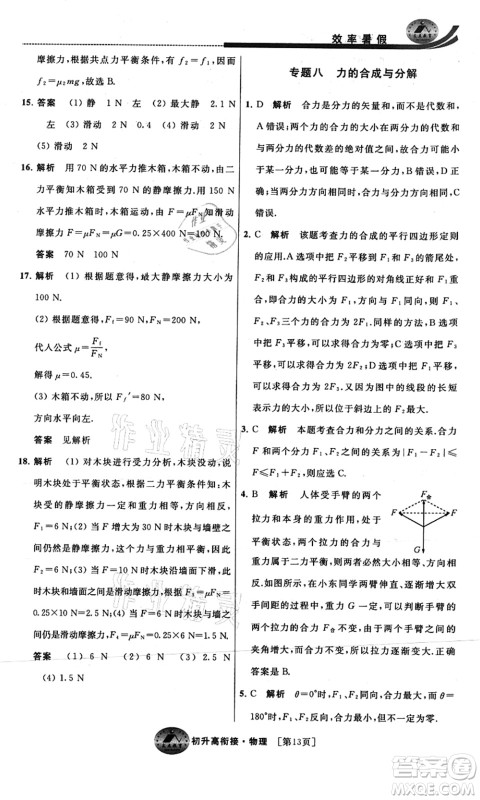 效率暑假
摩擦力，根据共点力平衡条件，有 f=F，
f=μ2mg，故选项 B 正确.
15. 答案 （1）静 1 N 左 （2）最大静 2.1 N
左 （3）滑动 2 N 0.4 （4）滑动 2 N 左
（5）滑动 2 N
16. 解析 用 70 N 的水平力推木箱，木箱不动，由二
力平衡知木箱与地面的静摩擦力为 70 N. 用 150 N
的水平力推木箱时，木箱与地面的摩擦力为滑动
摩擦力，F=μFN=μG=0.25×400 N=100 N.
答案 70 N 100 N
17. 解析 （1）根据题意得，最大静摩擦力大小为
100 N.
（2）根据题意得，Ff=90 N，FN=200 N，
代人公式 μ=Ff/FN，
解得 μ=0.45.
（3）木箱不动，所以 Ff′=80 N，
方向水平向左.
答案 见解析
18. 解析 （1）对木块进行受力分析，木块没动，说
明木块处于平衡状态，根据二力平衡条件知：木
块受的静摩擦力一定和重力大小相等，方向相
反，Ff=6 N；（2）当 F 增大为 30 N 时，木块与墙面之
间仍然是静摩擦力，这个力与重力平衡，因此大
小仍然是 6 N；（3）当 F=10 N 时，木块与墙壁之
间是滑动摩擦力，Ff=μFN=0.25×10 N=2.5 N；
（4）当 F=6 N 时，木块与墙面之间仍然是滑动
摩擦力，Ff=μFN=0.25×6 N=1.5 N.
答案 （1）6 N （2）6 N （3）2.5 N
（4）1.5 N
专题八 力的合成与分解
1. D 解析 合力是分力的矢量和，而不是代数和，
A 错误；合力的大小在两分力大小的代数和
与两分力的代数差的绝对值之间，因此合力不一
定大于某一个分力，也不一定小于某一个分力，
故 B 错误，D 正确；合力的大小与两分力夹角有
关，当两分力方向相同时，合力等于两分力之和，
C 错误.
2. C 解析 该题考查力的合成的平行四边形定则
的应用. A 选项中把 F2 平移到力 F1 的箭尾处，
合力与 F1、F2 构成的平行四边形的对角线为
F1，则三个力的合力为 2F1. B 选项中把 F3 平
移，可以求得合力为零；C 选项中把 F3 平移，可
以求得合力为 2F3. D 选项中把 F1 平移，可以
求得合力为 2F2，又因为题图中的线段的长短
表示力的大小，所以 F2 最大.
3. C 解析 本题考查合力与分力的关系. 合力与
两个分力之间的关系为|F1−F2|≤F≤F1+F2
⇒0≤F≤2F1，C 正确.
4. B 解析 人体受手臂的两个
拉力和本身的重力作用，处于
平衡状态，两手臂的拉力的合
力大小等于人的重力，方向与
重力方向相反，在小东同学两手臂伸直，逐渐增大
双臂间的夹角的过程中，可以判断手臂的
拉力的合力 F合 不变，两手臂间角度逐渐增大，
则两臂的拉力 F 逐渐增大，如图所示，所以正确
答案是 B.
F合
F
F
G
5. C 解析 θ=0°时，F1、F2 方向相同，合力最大；θ
=180°时，F1、F2 方向相反，合力最小，随着 θ 的增
初升高衔接·物理 [第13页]
作业精灵